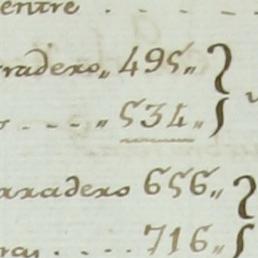 entre . . . . .
radero,, 495,,
. - - - ,, 534,,
aradero 656,,
ras . . . . 716,,